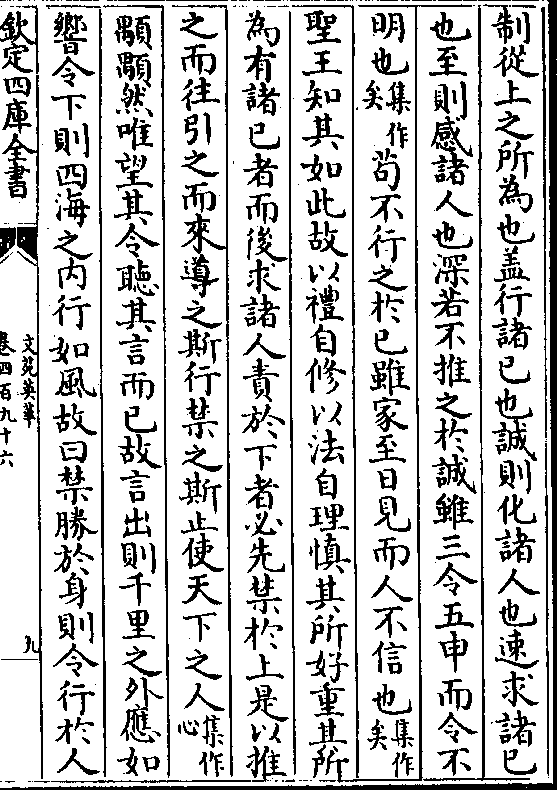 制從上之所為也盖行諸已也誠則化諸人也速求諸已
也至則感諸人也深若不推之於誠雖三令五申而令不
明也集作矣苟不行之於已雖家至日見而人不信也集作矣
聖王知其如此故以禮自修以法自理慎其所好重其所
為有諸已者而後求諸人責於下者必先禁於上是以推
之而往引之而來導之斯行禁之斯止使天下之人集作心
顒顒然唯望其令聽其言而已故言出則千里之外應如
響令下則四海之内行如風故曰禁勝於身則令行於人
欽定四庫全書
文苑英華
卷四百九十六
九